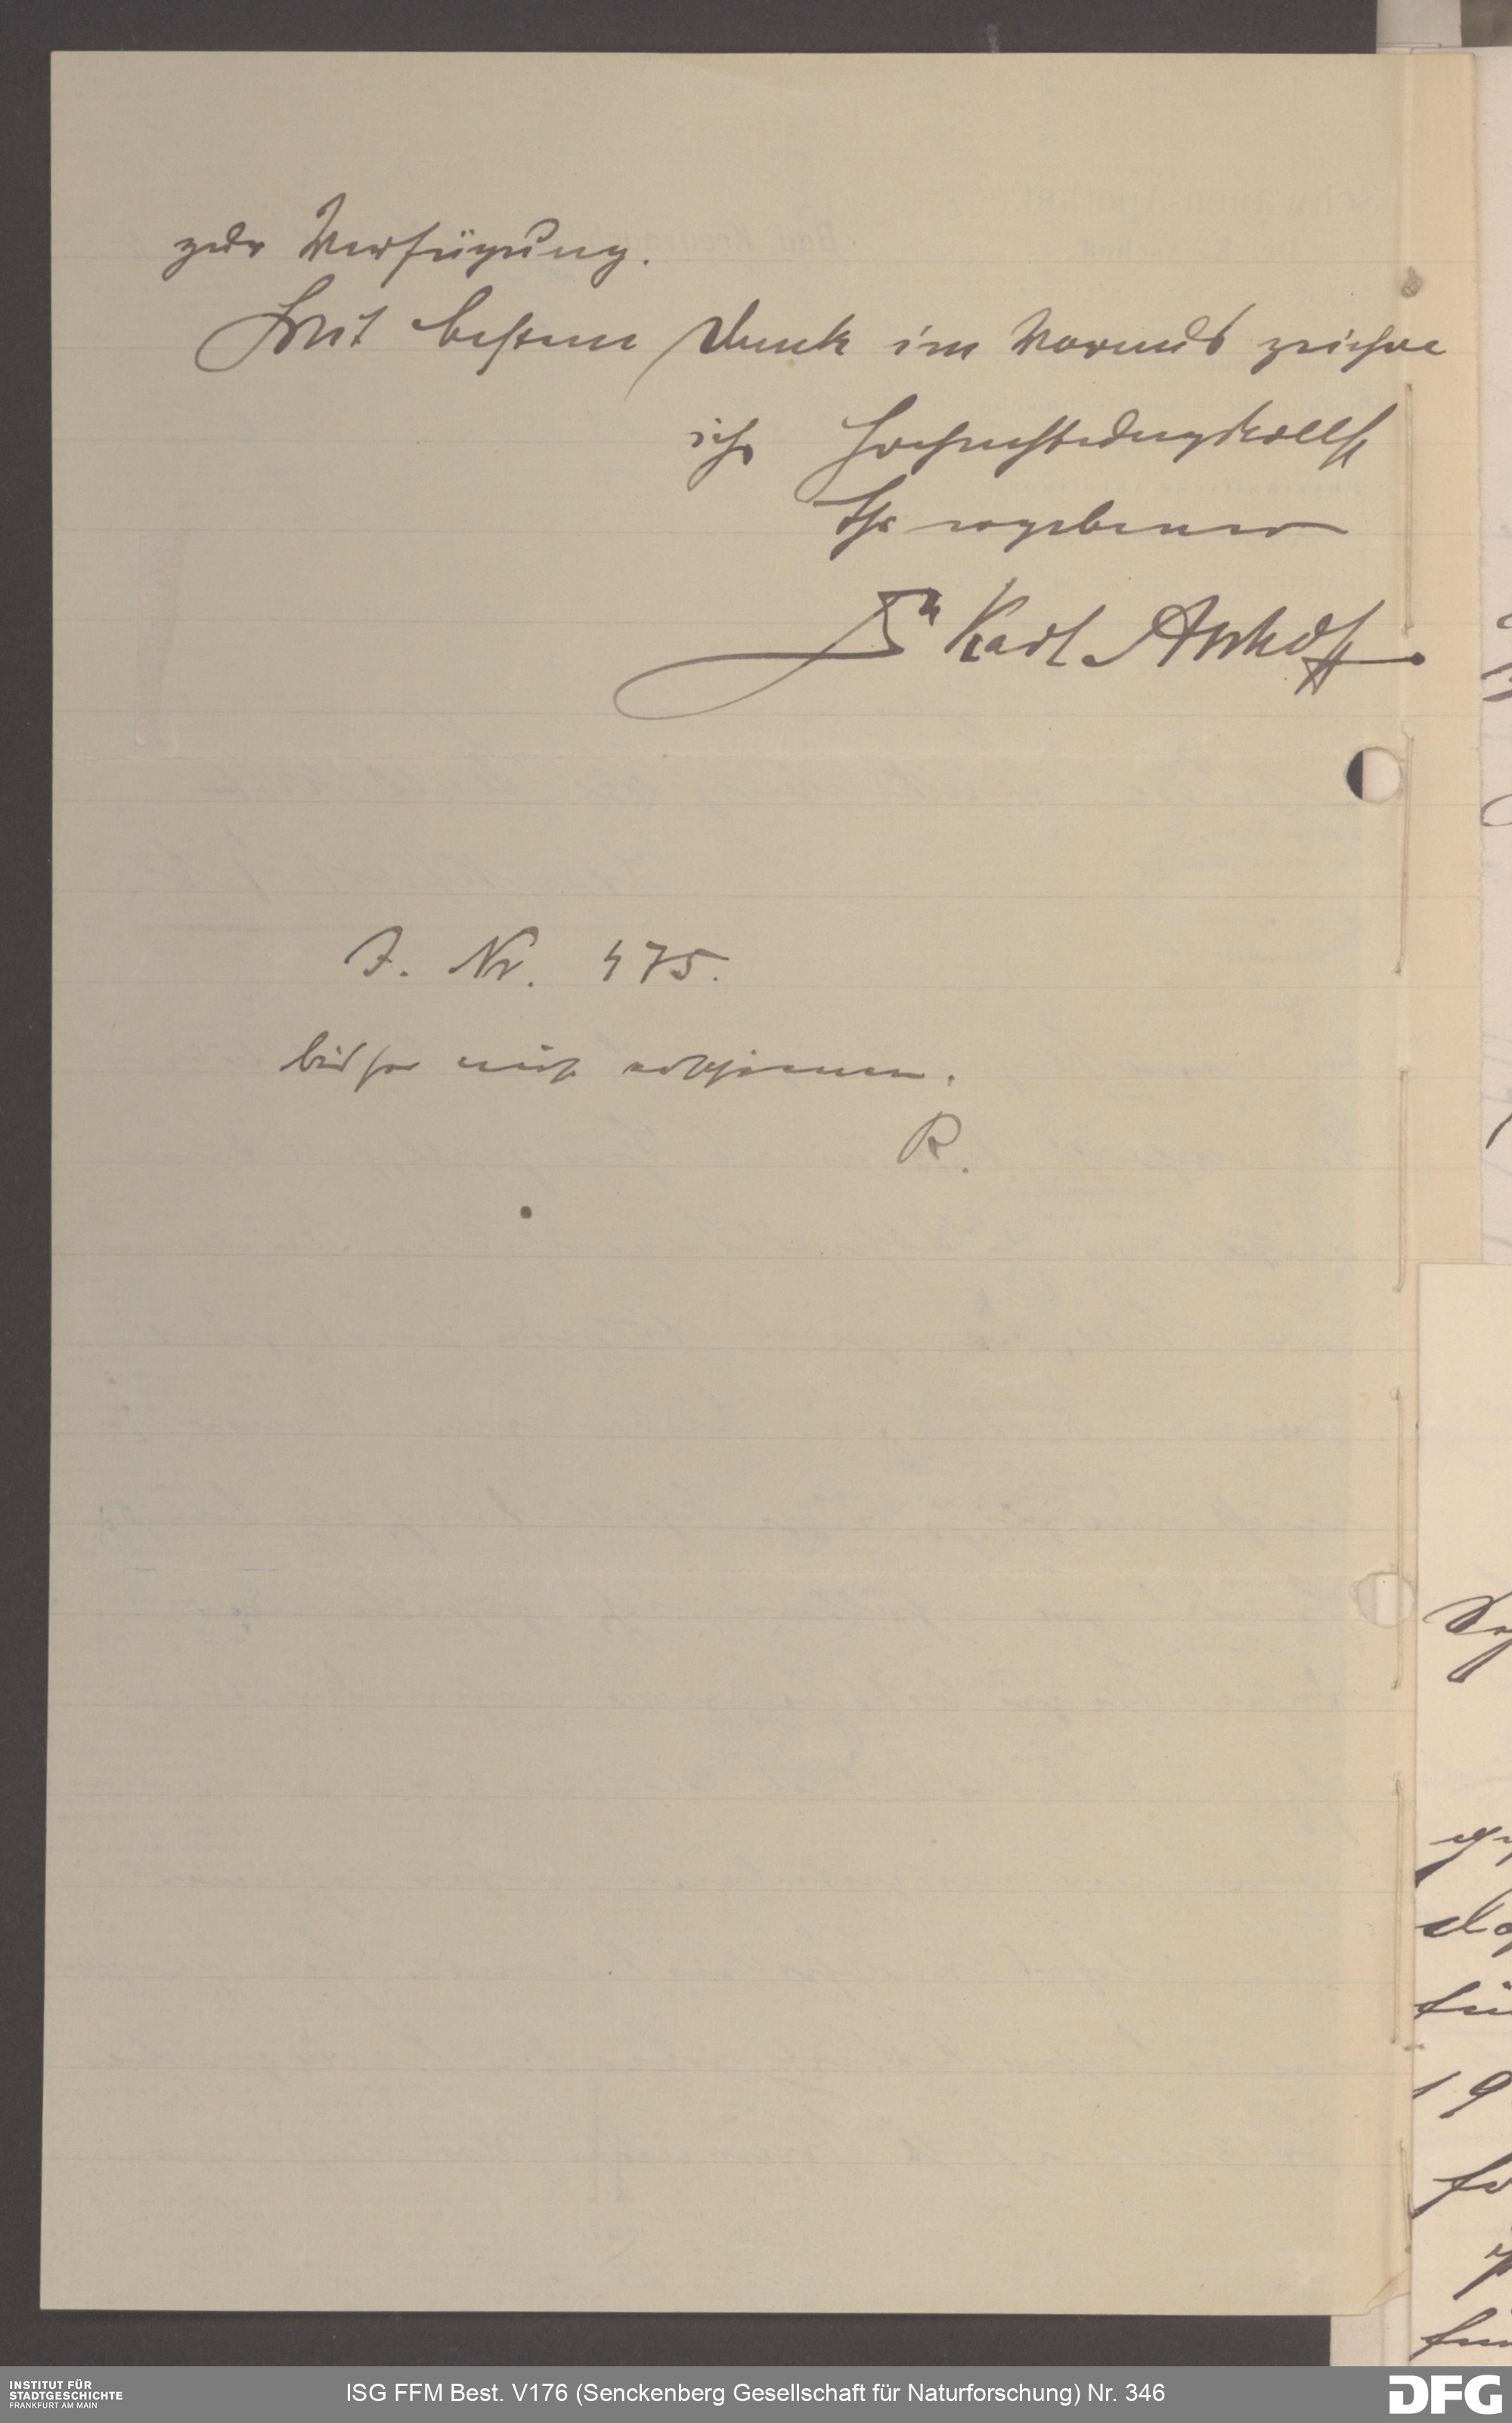 zur Verfügung.
Mit bestem Dank im Voraus zeichne
ich hochachtungsvollst
Ihr ergebener
Dr Karl Aschoff
J. Nr. 475.
bisher nicht erschienen.
R.
INSTITUT FÜR
STADTGESCHICHTE
FRANKFURT AM MAIN
ISG FFM Best. V176 (Senckenberg Gesellschaft für Naturforschung) Nr. 346
DFG